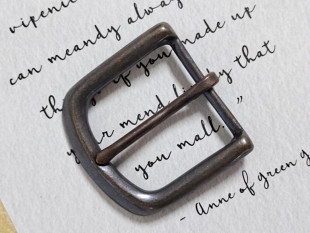 vipenic
can meandy alway
th if you made up
your mend that
you mall."
- Anne of green g